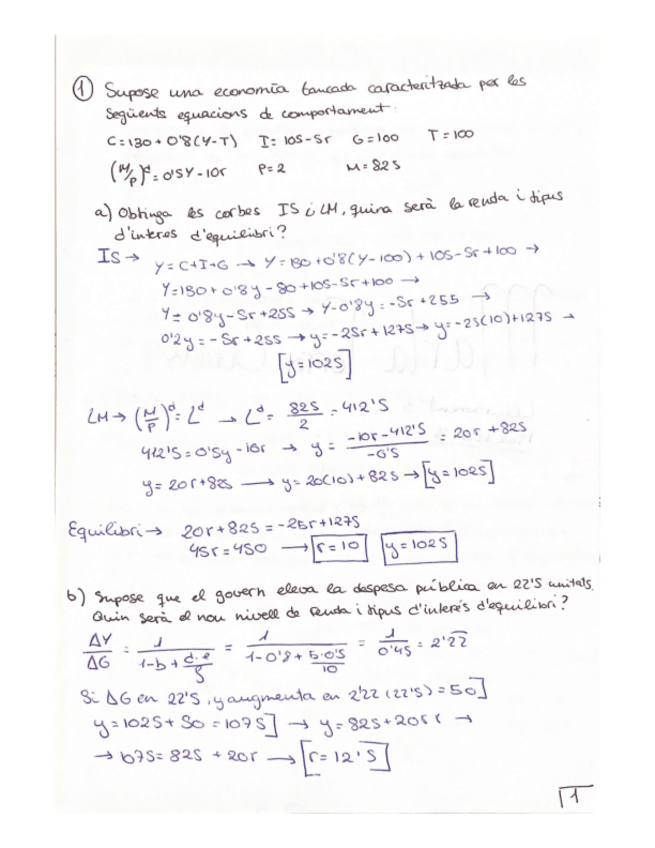 ① Supose una economia tancada caracteritzada per les
següents equacions de comportament:
C=130+0'8(Y-T) I=105-5r G=100 T=100
(M/P)^d=0'5Y-10r P=2 M=825
a) Obtinga les corbes IS i LM, quina serà la renda i tipus
d'interes d'equilibri?
IS → Y=C+I+G → Y=130+0'8(Y-100)+105-5r+100 →
Y=130+0'8y-80+105-5r+100 →
Y=0'8y-5r+255 → Y-0'8y=-5r+255 →
0'2y=-5r+255 → y=-25r+1275 → y=-25(10)+1275 →
[y=1025]
LM → (M/P)^d = L^d → L^d = 825/2 = 412'5
412'5=0'5y-10r → y = -10r-412'5/-0'5 = 20r+825
y=20r+825 → y=20(10)+825 → [y=1025]
Equilibri → 20r+825=-25r+1275
45r=450 → [r=10] [y=1025]
b) Supose que el govern eleva la despesa pública en 22'5 unitats.
Quin serà el nou nivell de renda i tipus d'interés d'equilibri?
ΔY/ΔG = 1/1-b+d·e/g = 1/1-0'8+5·0'5/10 = 1/0'45 = 2'22
Si ΔG en 22'5, y augmenta en 2'22(22'5)=50]
y=1025+50=1075] → y=825+20r →
→ 1075=825+20r → [r=12'5]
1